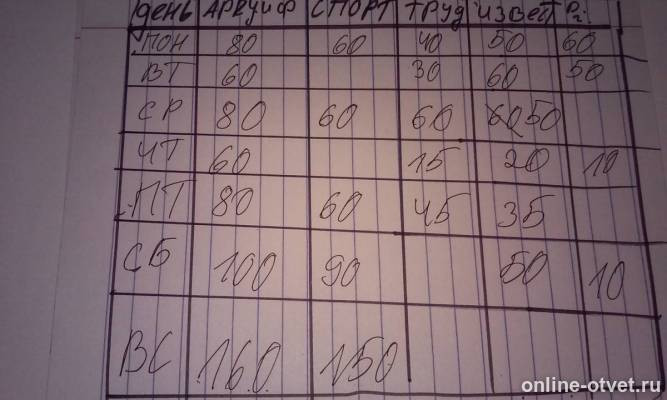 день АРВУИФ СПОРТ ТРУД ИЗВЕСТ
ПОН 80 60 40 50 60
ВТ 60 30 60 50
СР 80 60 60 50
ЧТ 60 15 20 10
ПТ 80 60 45 35
СБ 100 90 50 10
ВС 160 150
online-otvet.ru